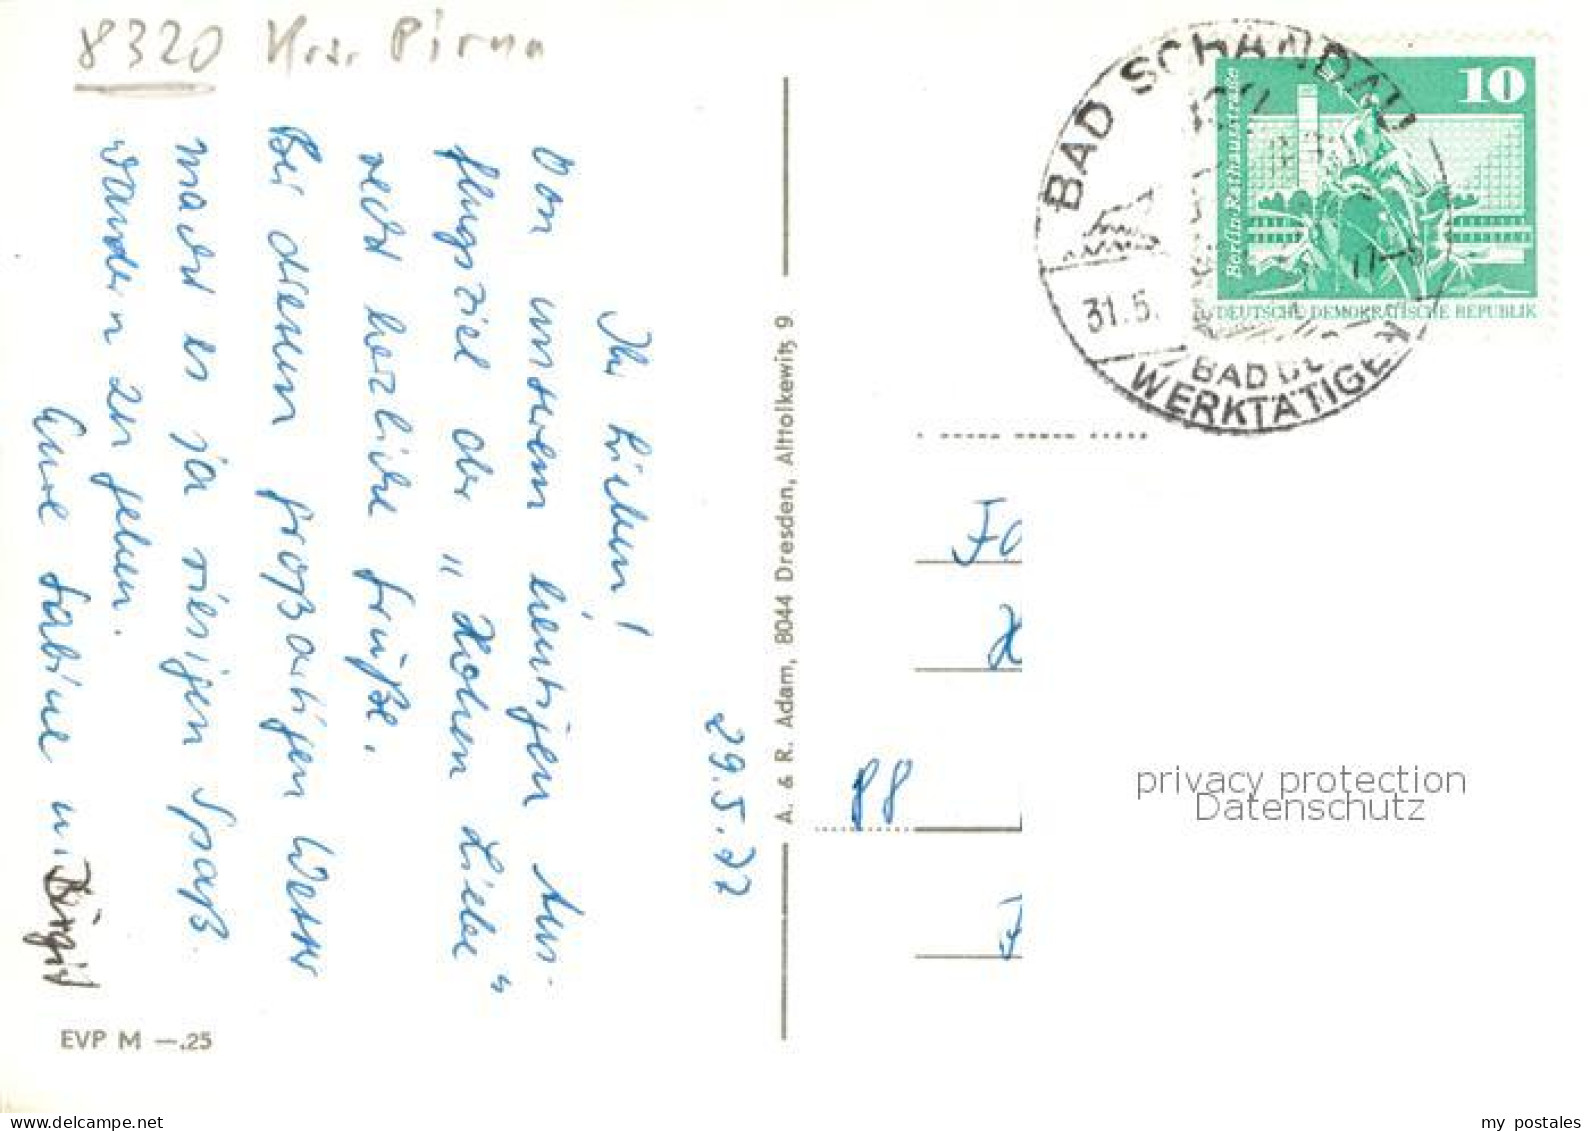 8320 Krs. Pirna
29.5.77
Ihr Lieben!
Von unserem heutigen Aus-
flugsziel der "Hohen Liebe"
recht herzliche Grüße.
Bei diesem großartigen Wetter
macht es ja riesigen Spaß
wandern zu gehen.
Eure Sabine u. Birgit
EVP M —,25
A. & R. Adam, 8044 Dresden, Alttolkewitz 9
BAD SCHANDAU
31.5.
17-8
BAD DE
WERKTÄTIGEN
10
Berlin, Rathausstraße
DEUTSCHE DEMOKRATISCHE REPUBLIK
88
privacy protection
Datenschutz
my postales